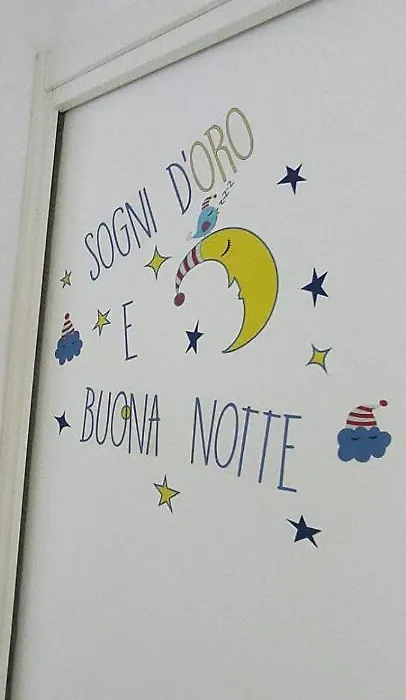 SOGNI D'ORO
zzz
E
BUONA NOTTE